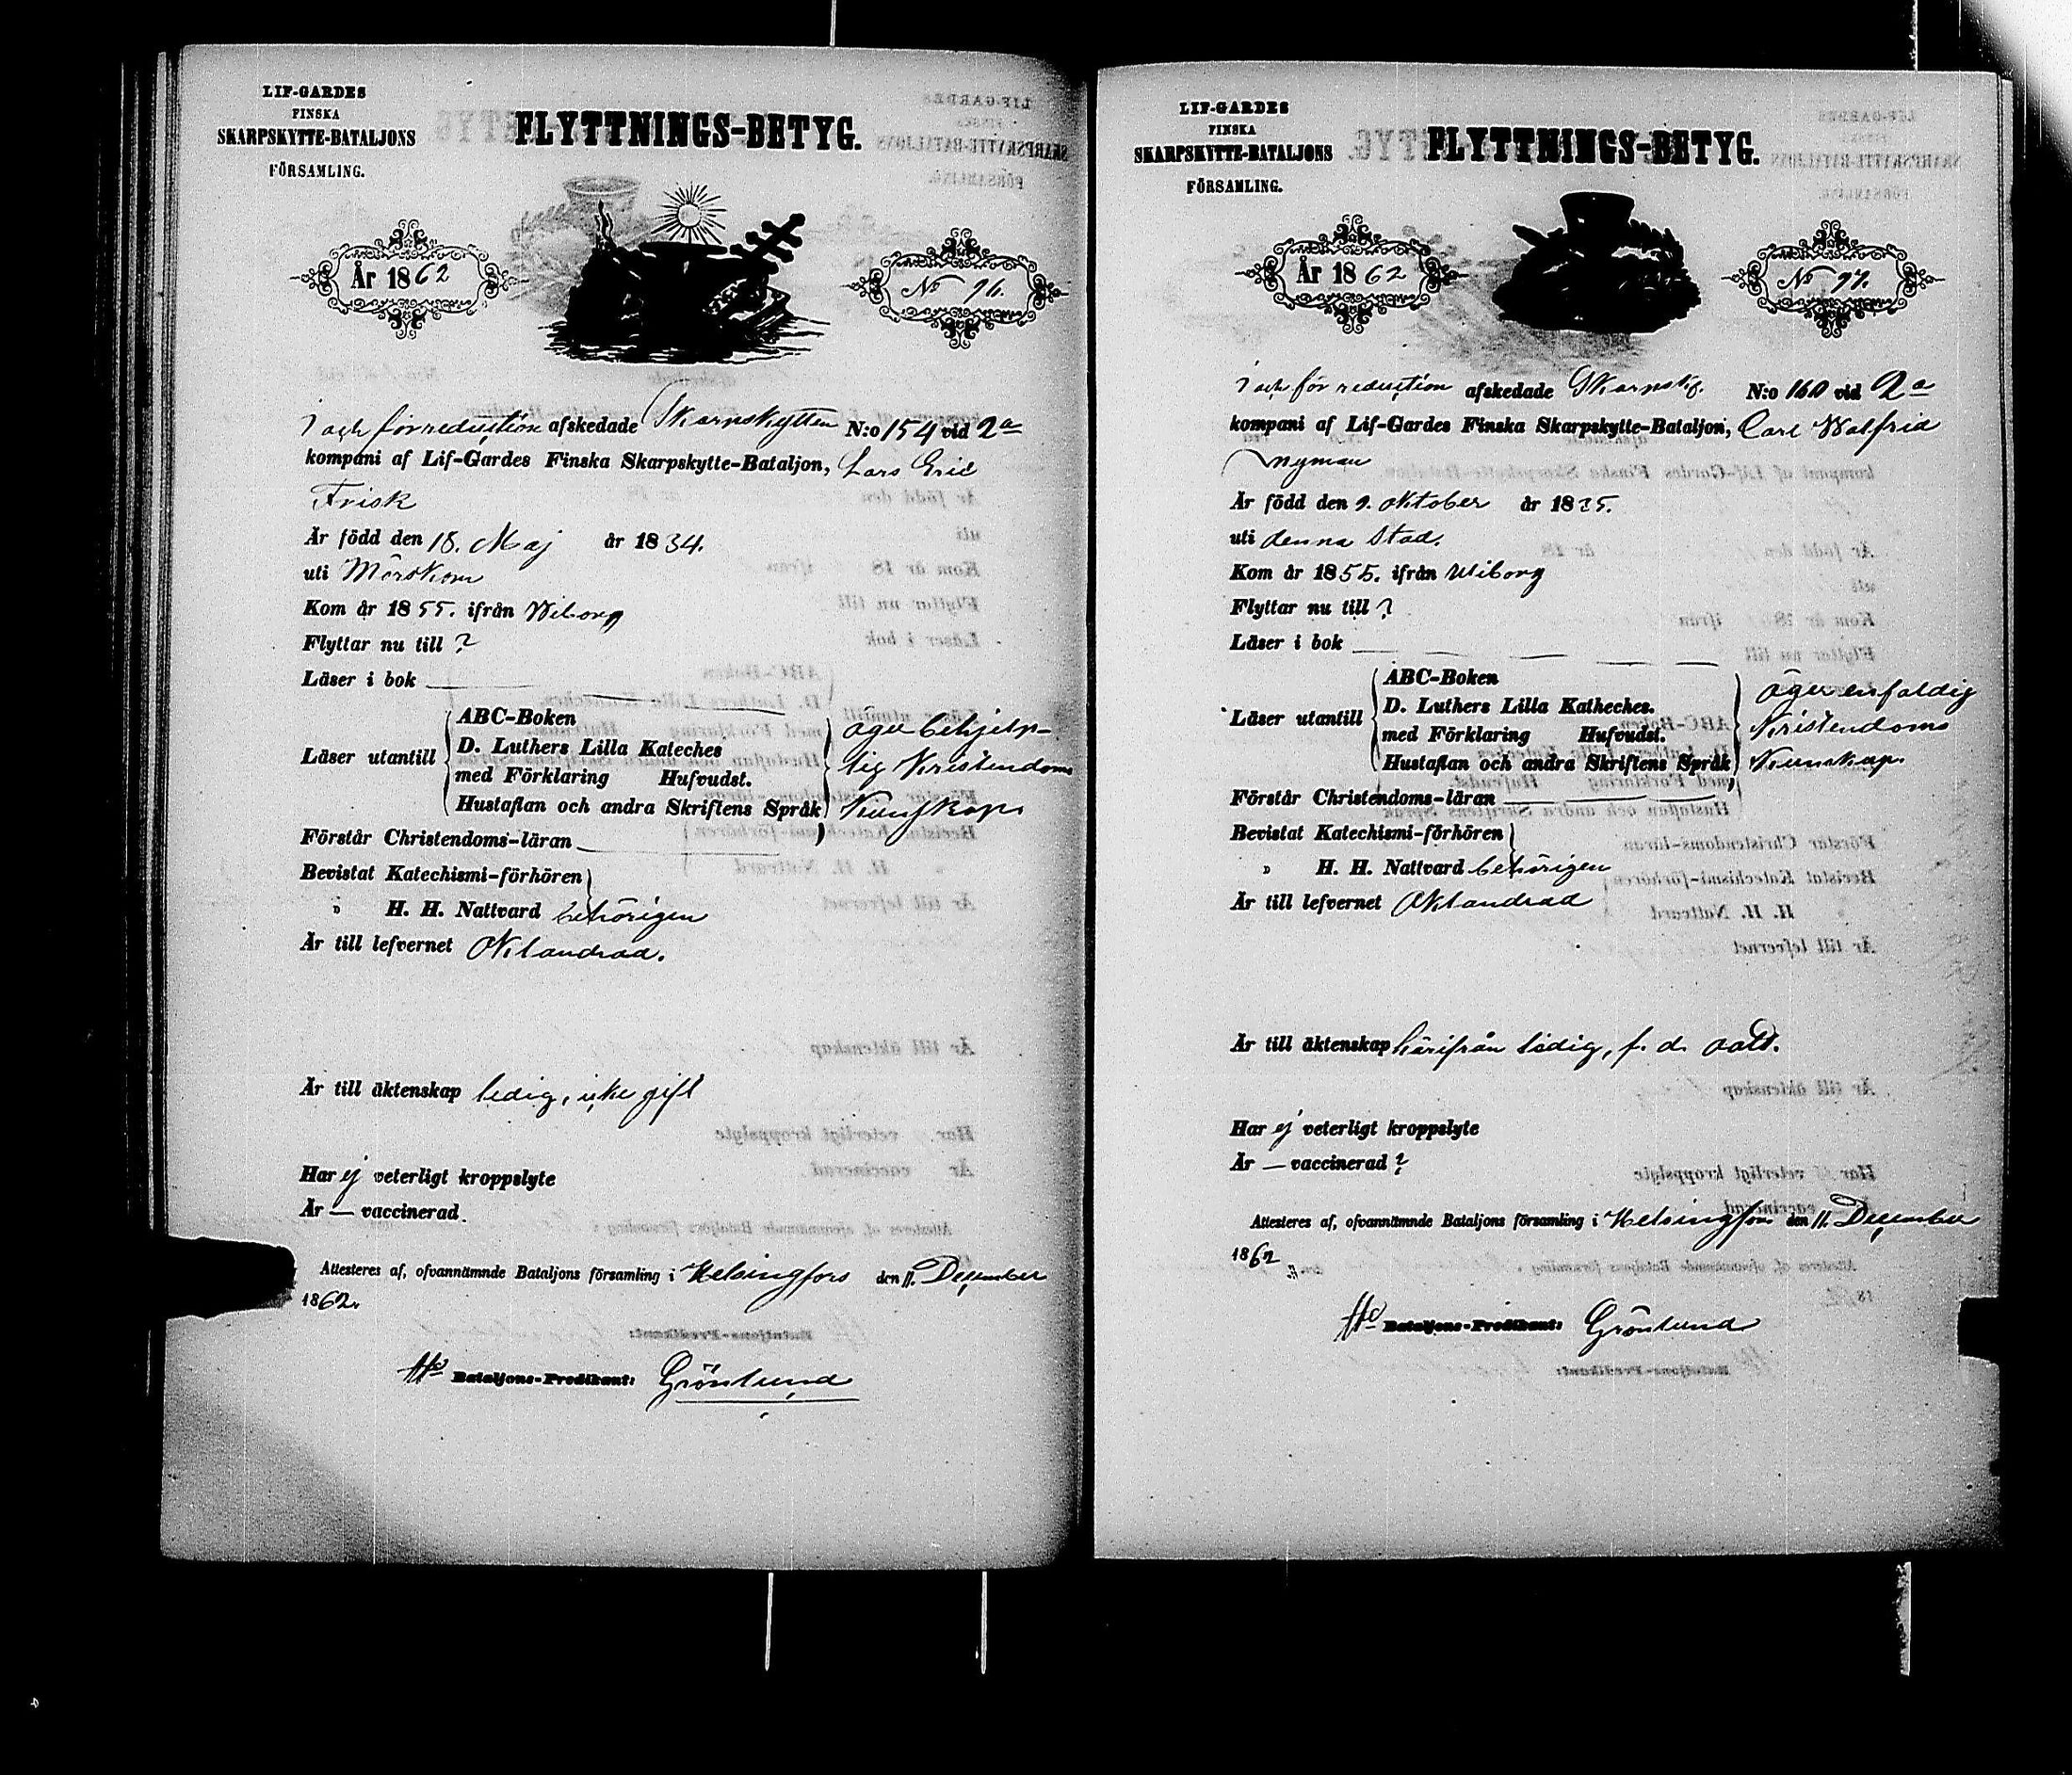 LIF-GARDES
FINSKA
SKARPSKYTTE-BATALJONS
FÖRSAMLING.
FLYTTNINGS-BETYG.
År 1862
No 96.
I och för reduction afskedade Skarpskytten N:o 154 vid 2a
kompani af Lif-Gardes Finska Skarpskytte-Bataljon, Lars Eric
Frisk
Är född den 18. Maj år 1834.
uti Mörskom
Kom år 1855. ifrån Wiborg
Flyttar nu till ?
Läser i bok
Läser utantill
ABC-Boken
D. Luthers Lilla Kateches
med Förklaring Hufvudst.
Hustaflan och andra Skriftens Språk
äger behjelp-
lig Kristendoms
Kunskap.
Förstår Christendoms-läran
Bevistat Katechismi-förhören
" H. H. Nattvard behörigen
Är till lefvernet Oklandrad.
Är till äktenskap ledig, icke gift
Har ej veterligt kroppslyte
Är — vaccinerad
Attesteras af, ofvannämnde Bataljons församling i Helsingfors den 11. December
1862.
Bataljons-Predikant: Grönlund
LIF-GARDES
FINSKA
SKARPSKYTTE-BATALJONS
FÖRSAMLING.
FLYTTNINGS-BETYG.
År 1862
No 97.
I och för reduction afskedade Skarpsk. N:o 160 vid 2a
kompani af Lif-Gardes Finska Skarpskytte-Bataljon, Carl Walfrid
Nyman
Är född den 9. Oktober år 1835.
uti denna Stad.
Kom år 1855. ifrån Wiborg
Flyttar nu till ?
Läser i bok
Läser utantill
ABC-Boken
D. Luthers Lilla Katheches.
med Förklaring Hufvudst.
Hustaflan och andra Skriftens Språk
äger enfaldig
Kristendoms
Kunskap.
Förstår Christendoms-läran
Bevistat Katechismi-förhören
" H. H. Nattvard behörigen
Är till lefvernet Oklandrad
Är till äktenskap härifrån ledig, f. d.
Har ej veterligt kroppslyte
Är — vaccinerad ?
Attesteres af, ofvannämnde Bataljons församling i Helsingfors den 11. December
1862
Bataljons-Predikant: Grönlund